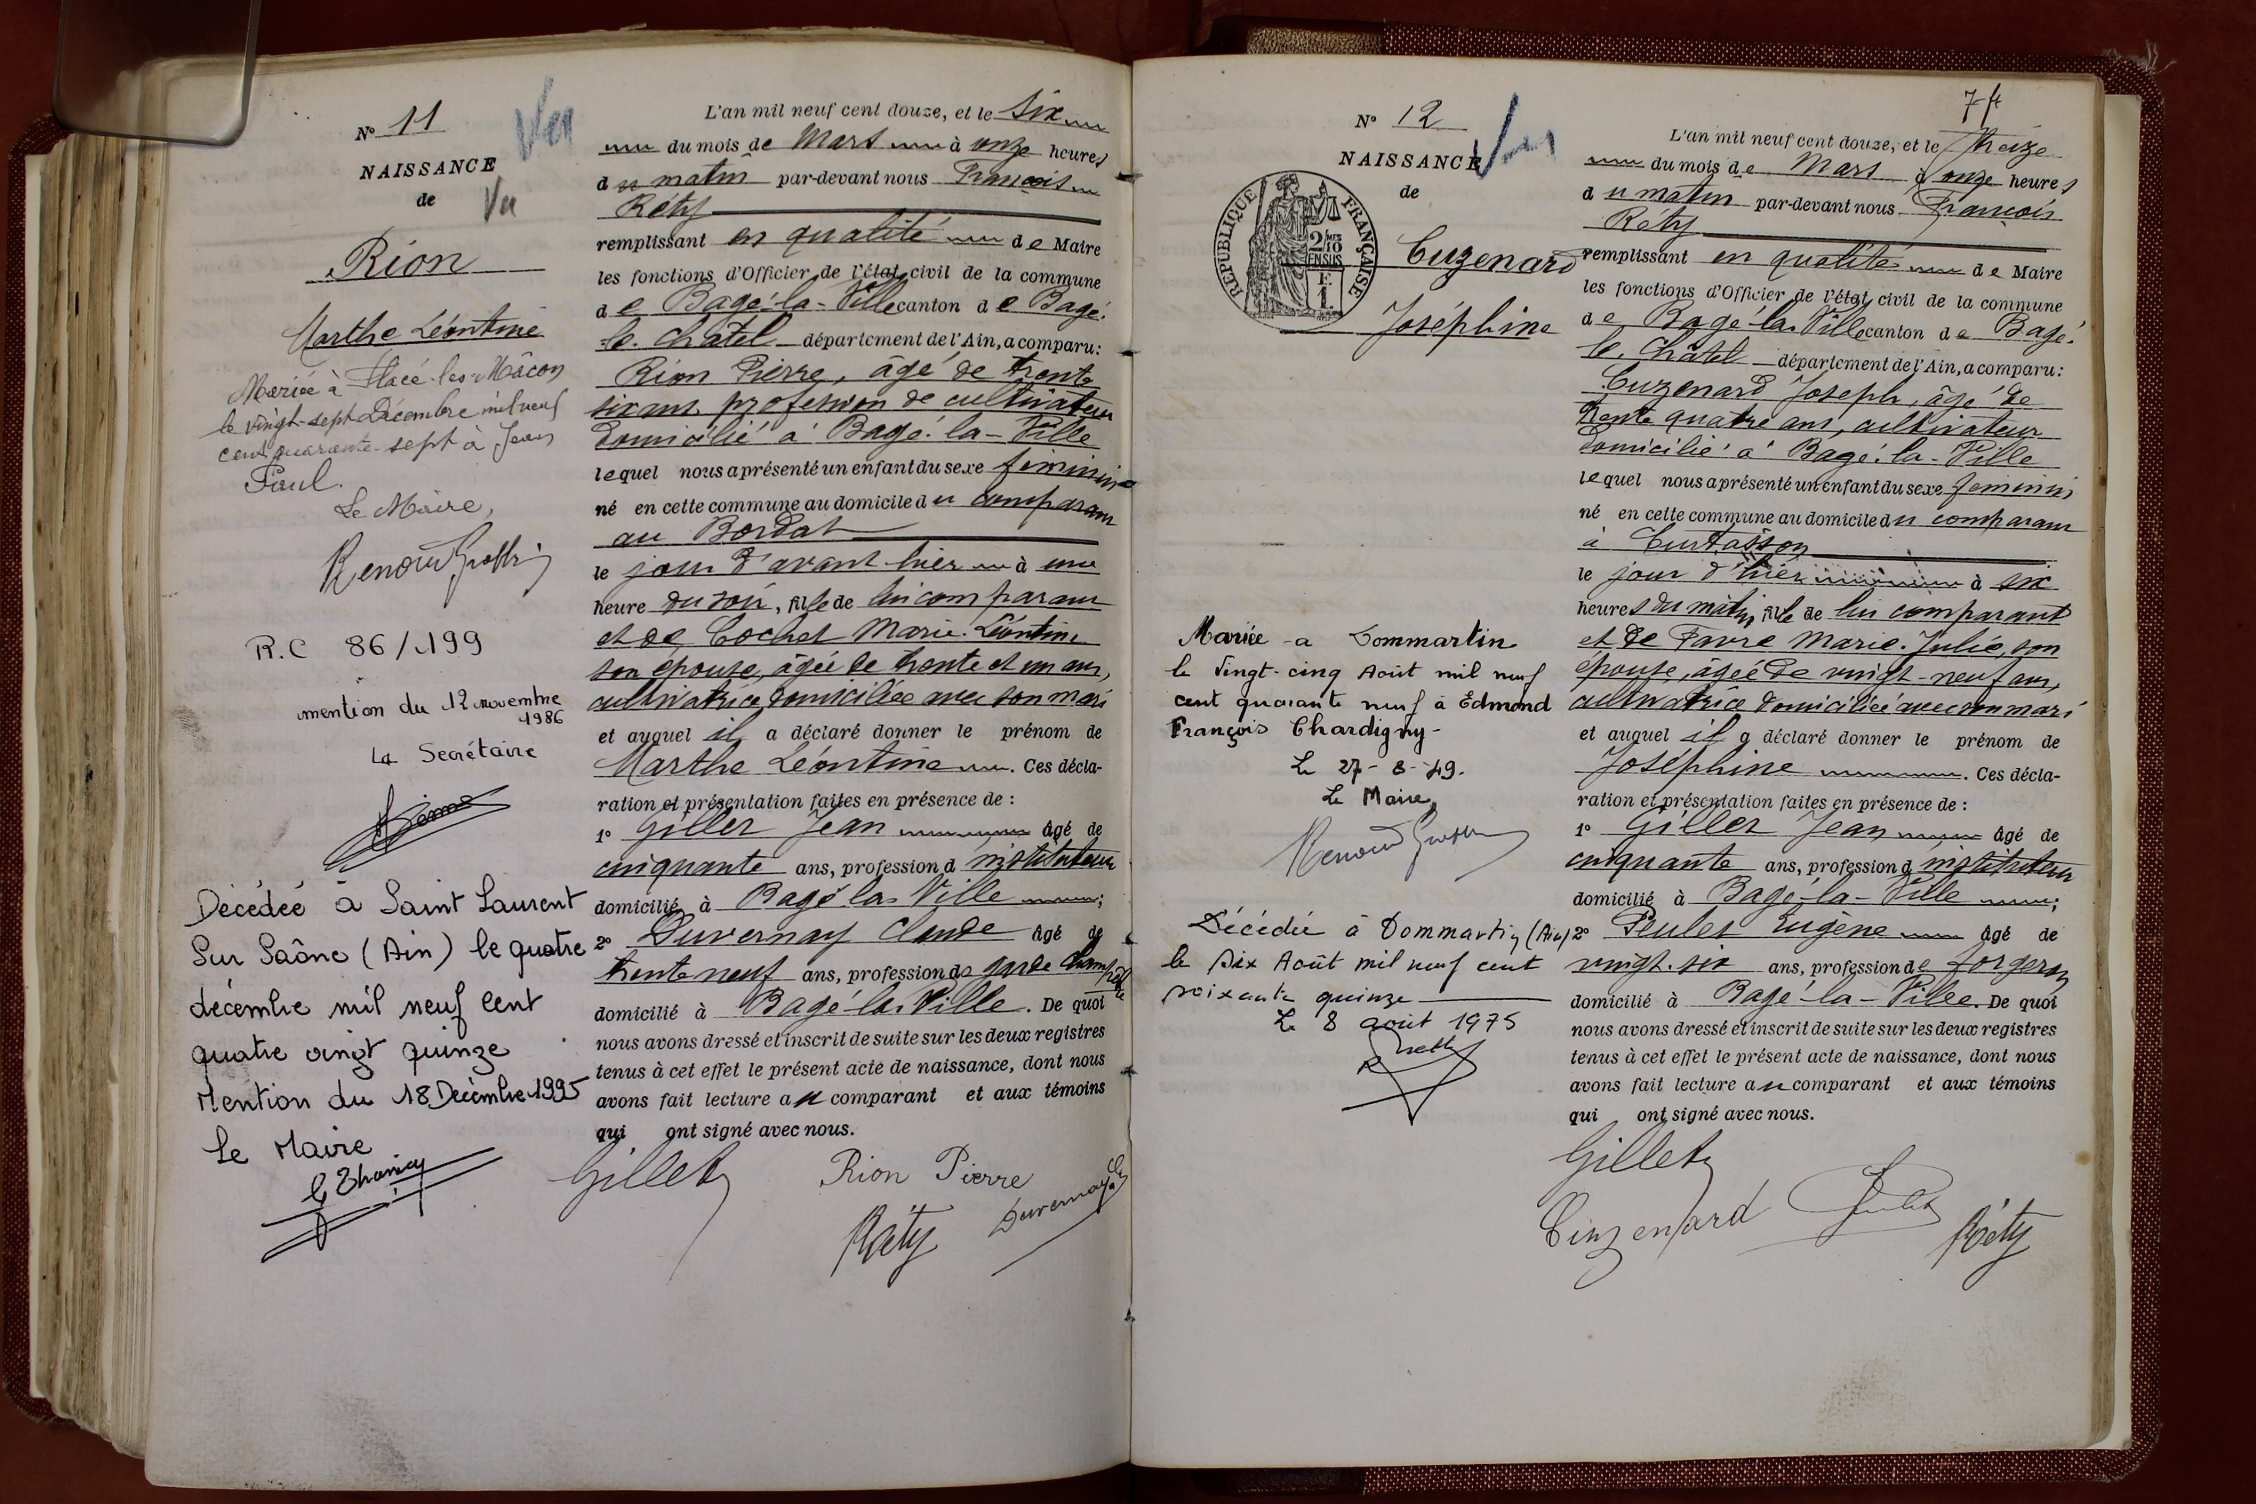 N° 11
Vu
NAISSANCE
de
Vu
Rion
Marthe Léontine
Mariée à Flacé-les-Mâcon
le vingt-sept décembre mil neuf
cent quarante-sept à Jean
Paul.
Le Maire,
R.C 86/199
mention du 12 novembre
1986
La Secrétaire
Décédée à Saint Laurent
Sur Saône (Ain) le quatre
décembre mil neuf cent
quatre vingt quinze
Mention du 18 Décembre 1995
Le Maire
L'an mil neuf cent douze, et le six
du mois de Mars à onze heures
du matin par-devant nous François
Réty
remplissant en qualité de Maire
les fonctions d'Officier de l'état civil de la commune
de Bagé-la-Ville canton de Bagé-
le-Châtel département de l'Ain, a comparu:
Rion Pierre, âgé de trente
six ans, profession de cultivateur
domicilié à Bagé-la-Ville
lequel nous a présenté un enfant du sexe féminin
né en cette commune au domicile du comparant
au Bordat
le jour d'avant hier à une
heure du soir, fille de lui comparant
et de Cochet Marie-Léontine
son épouse, âgée de trente et un ans,
cultivatrice domiciliée avec son mari
et auquel il a déclaré donner le prénom de
Marthe Léontine. Ces décla-
ration et présentation faites en présence de :
1° Gillet Jean âgé de
cinquante ans, profession d'instituteur
domicilié à Bagé-la-Ville;
2° Duvernay Claude âgé de
trente neuf ans, profession de garde champêtre
domicilié à Bagé-la-Ville. De quoi
nous avons dressé et inscrit de suite sur les deux registres
tenus à cet effet le présent acte de naissance, dont nous
avons fait lecture au comparant et aux témoins
qui ont signé avec nous.
Gillet
Rion Pierre
Réty
Duvernay Cl
7 ft
N° 12
Vu
NAISSANCE
de
RÉPUBLIQUE FRANÇAISE
2/10 EN SUS
F
1
Cuzenard
Joséphine
Mariée à Dommartin
le Vingt-cinq Août mil neuf
cent quarante neuf à Edmond
François Chardigny-
Le 27-8-49.
Le Maire
Décédée à Dommartin (Ain)
le Six Août mil neuf cent
soixante quinze
Le 8 août 1975
L'an mil neuf cent douze, et le treize
du mois de Mars à onze heures
du matin par-devant nous François
Réty
remplissant en qualité de Maire
les fonctions d'Officier de l'état civil de la commune
de Bagé-la-Ville canton de Bagé-
le-Châtel département de l'Ain, a comparu:
Cuzenard Joseph, âgé de
trente quatre ans, cultivateur
domicilié à Bagé-la-Ville
lequel nous a présenté un enfant du sexe féminin
né en cette commune au domicile du comparant
à Curtasson
le jour d'hier à six
heures du matin, fille de lui comparant
et de Favre Marie-Julie, son
épouse, âgée de vingt-neuf ans,
cultivatrice domiciliée avec son mari
et auquel il a déclaré donner le prénom de
Joséphine. Ces décla-
ration et présentation faites en présence de :
1° Gillet Jean âgé de
cinquante ans, profession d'instituteur
domicilié à Bagé-la-Ville;
2° Peulet Eugène âgé de
vingt-six ans, profession de forgeron
domicilié à Bagé-la-Ville. De quoi
nous avons dressé et inscrit de suite sur les deux registres
tenus à cet effet le présent acte de naissance, dont nous
avons fait lecture au comparant et aux témoins
qui ont signé avec nous.
Gillet
Cuzenard
Réty